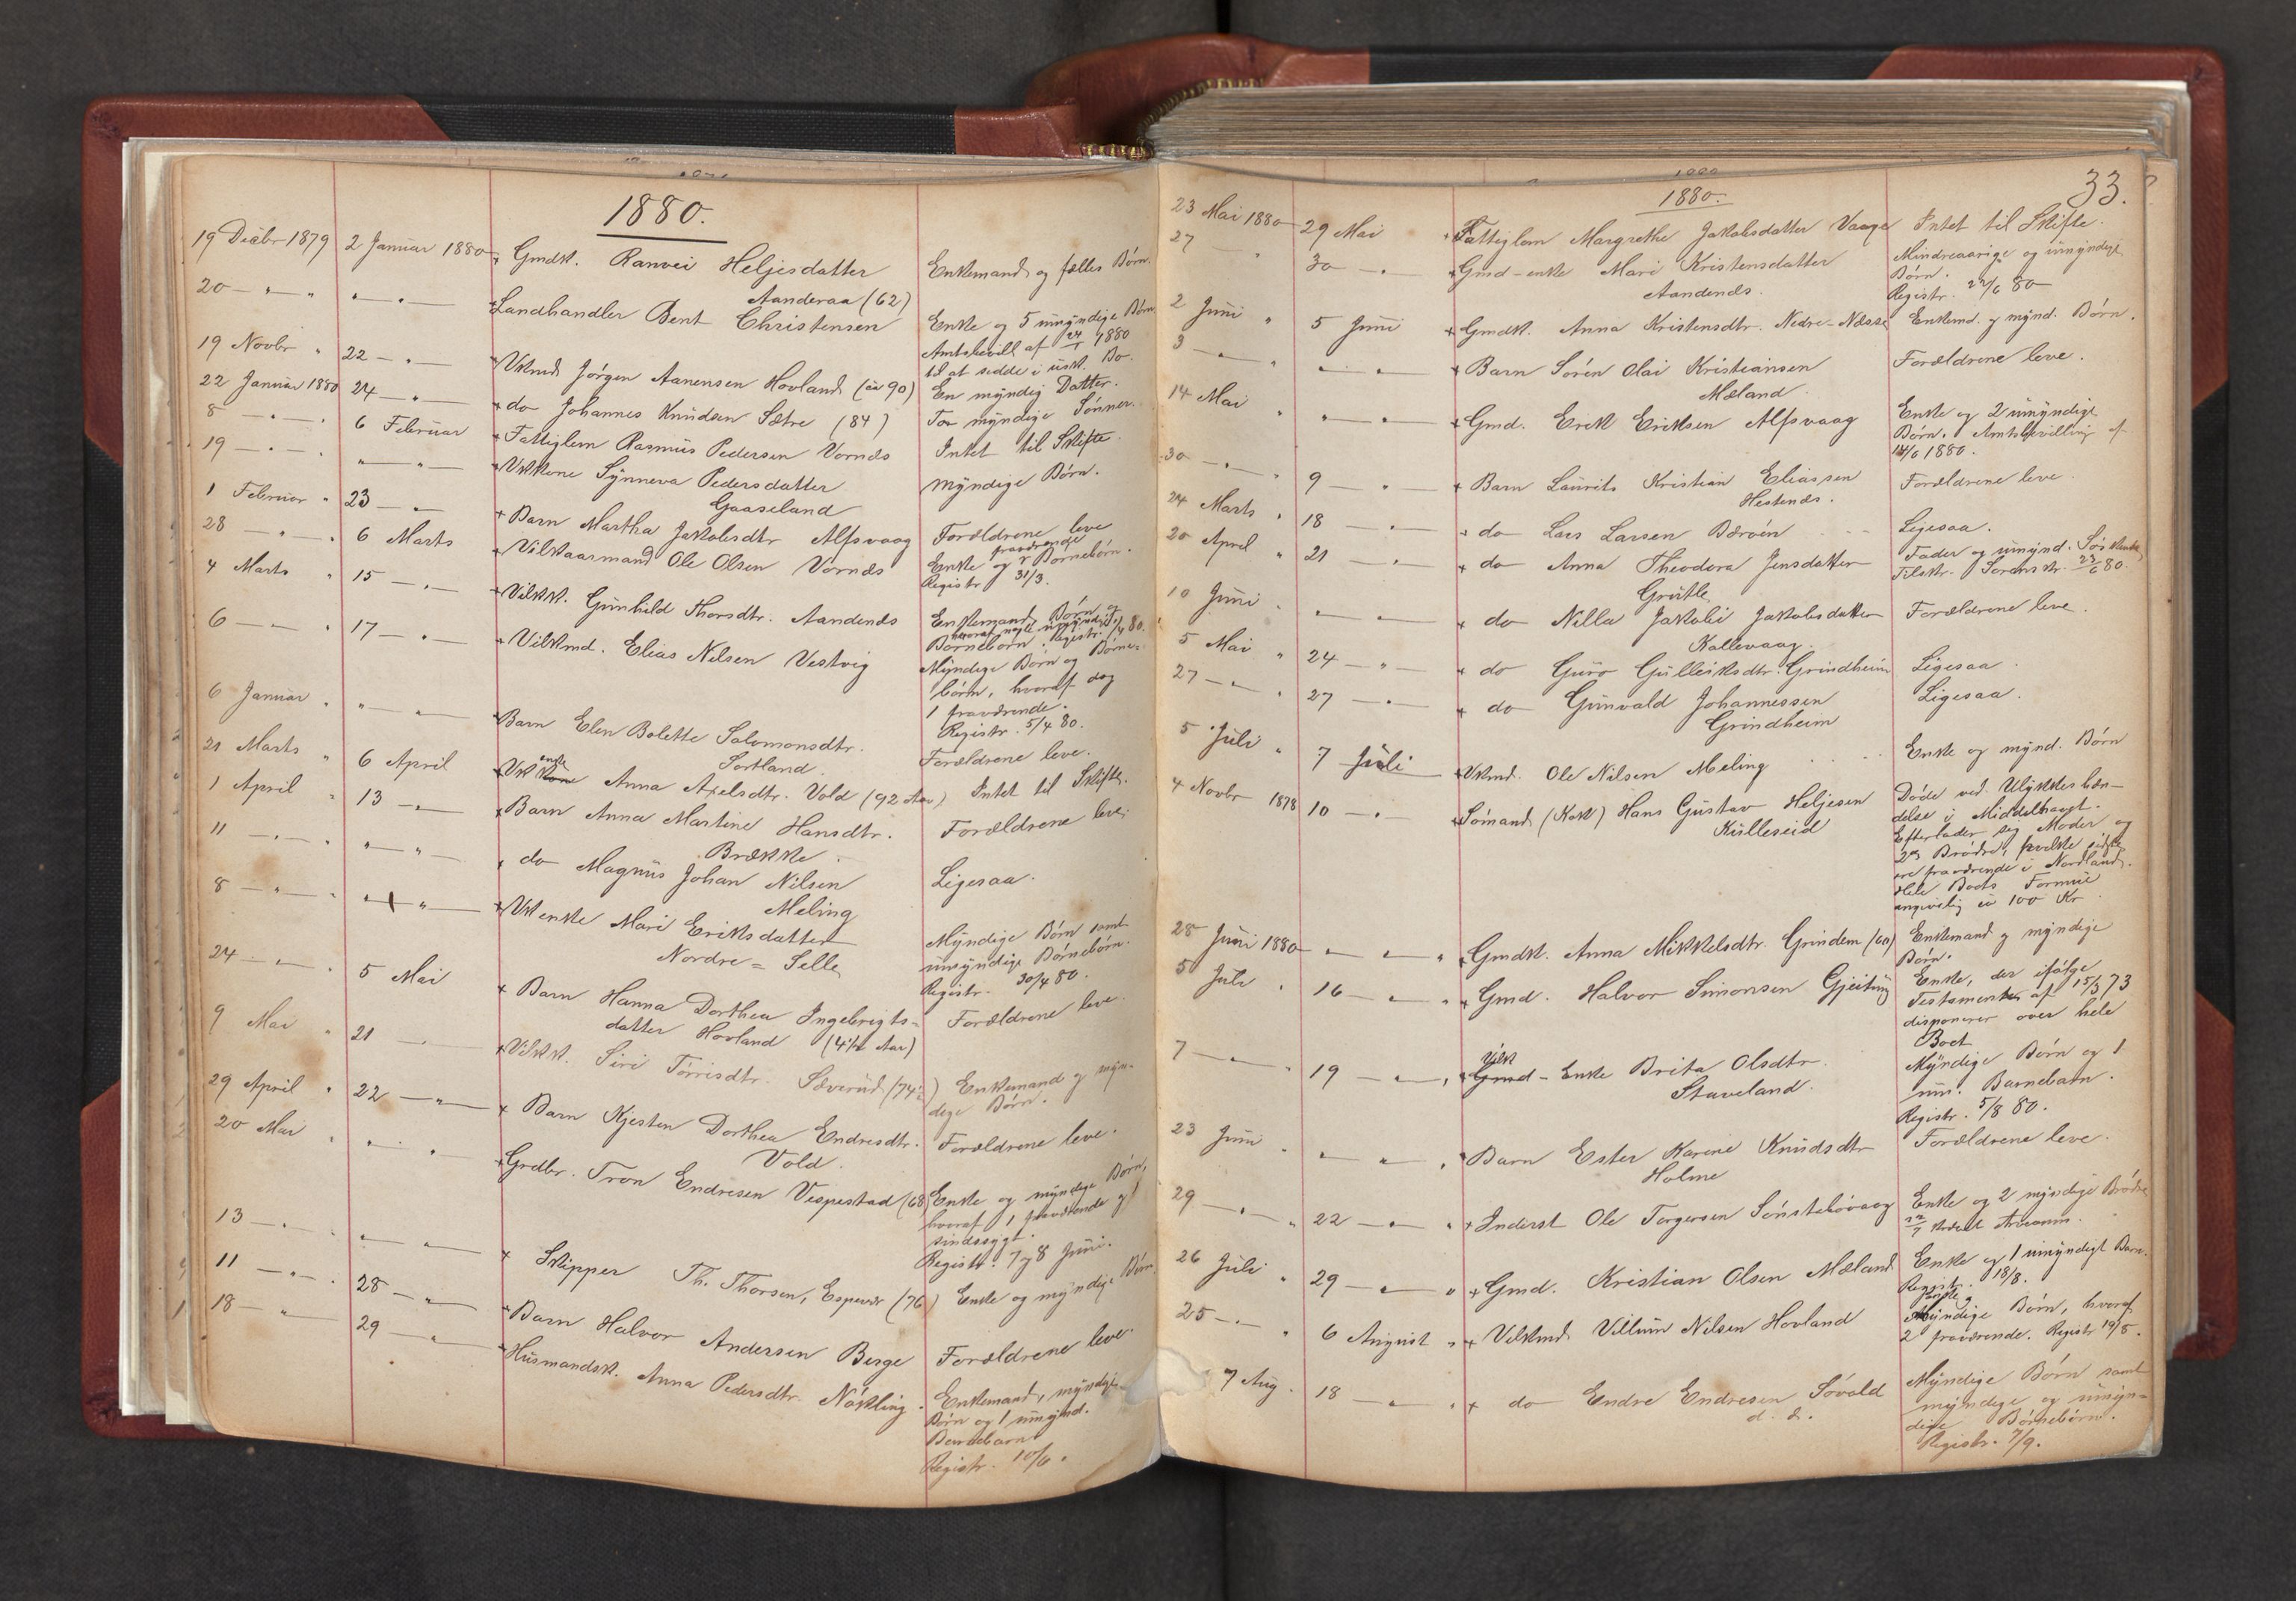 1880.
19 Decbr 1879 2 Januar 1880 Gmdk. Ranvei Heljesdatter Enkemand og fælles Børn.
Aanderaa (62)
20 — " — " " — " — Landhandler Bent Christensen Enke og 5 umyndige Børn
Amtsbevill af 24/1 1880
til at sidde i usk. Bo.
19 Novbr " 22 — " — Vkmd Jørgen Aanensen Hovland (ca 90) En myndig Datter.
22 Januar 1880 24 — " — do Johannes Knudsen Sætre (84) To myndige Sønner.
8 — " — " 6 Februar Fattiglem Rasmus Pedersen Vornæs Intet til Skifte.
19 — " — " " — " — Vkkone Synneva Pedersdatter myndige Børn.
Gaaseland
1 Februar " 23 — " — Barn Martha Jakobsdtr Alfsvaag Forældrene leve
28 — " — " 6 Marts Vilkaarmand Ole Olsen Vornæs Enke og fraværende Børnebørn.
Registr 31/3.
4 Marts " 15 — " — Vilkk. Gunhild Thorsdtr. Aandenæs Enkemand, Børn og
Børnebørn, hvoraf nogle umyndige. Registr. 1/4 80.
6 — " — " 17 — " — Vilkmd. Elias Nilsen Vestvig Myndige Børn og Børne-
børn, hvoraf dog
1 fraværende.
Registr. 5/4 80.
6 Januar " " — " — Barn Elen Bolette Salomonsdtr. Forældrene leve.
Sortland.
21 Marts " 6 April Vkenke Anna Axelsdtr. Vold (92 Aar) Intet til Skifte.
1 April " 13 — " — Barn Anna Martine Hansdtr. Forældrene leve.
Brække.
11 — " — " " — " — do Magnus Johan Nilsen Ligesaa.
Meling
8 — " — " " — " — Vkenke Mari Eriksdatter Myndige Børn samt
Nordre = Selle umyndige Børnebørn.
Registr. 30/4 80.
24 — " — " 5 Mai Barn Hanna Dorthea Ingebrigts- Forældrene leve.
datter Hovland (4 1/2 Aar)
9 Mai " 21 — Vilkk. Siri Tørrisdtr. Sæverud (74) Enkemand og myn-
dige Børn.
29 April " 22 — " — Barn Kjesten Dorthea Endresdtr. Forældrene leve.
Vold.
20 Mai " " — " — Grdbr. Tron Endresen Vespestad (68) Enke og myndige Børn,
hvoraf 1 fraværende og 1
sindssygt.
Registr. 7 og 8 Juni.
13 — " — " — " — Skipper Th. Thorsen, Espevær (76) Enke og myndige Børn
11 — " — " 28 — " — Barn Halvor Andersen Berge Forældrene leve.
18 — " — 29 — " — Husmandsk. Anna Pedersdtr. Nökling. Enkemand, myndige
Børn og 1 umynd.
Barnebarn
Registr. 10/6.
33.
1880.
23 Mai 1880 29 Mai Fattiglem Margrethe Jakobsdatter Vaage Intet til Skifte.
27 " 30 — " — Gmd-enke Mari Kristensdatter Mindreaarige og umyndige
Aandenæs. Børn.
Registr. 22/6 80
2 Juni " 5 Juni Gmdk. Anna Kristensdtr. Nedre-Næsse Enkemd. og mynd. Børn.
3 — " — " " — " Barn Sören Olai Kristiansen Forældrene leve.
Mæland.
14 Mai " " — " — Gmd. Erik Eriksen Alfsvaag Enke og 2 umyndige
Børn. Amtsbevilling af
14/6 1880.
30 — " — " 9 — " — Barn Laurits Kristian Eliassen Forældrene leve.
Hestenæs.
24 Marts " 18 — " — do Lars Larsen Bærøen Ligesaa.
20 April " 21 — " — do Anna Theodora Jensdatter Fader og umynd. Søskende
Grutle Tilskr. Sorensk. 23/6 80.
10 Juni " — " — do Nilla Jakobi Jakobsdatter Forældrene leve.
Kallevaag.
5 Mai " 24 — " — do Guro Gulleiksdtr. Grindheim Ligesaa.
27 — " — " 27 — " — do Gunvald Johannessen Ligesaa.
Grindheim
5 Juli " 7 Juli Vkmd. Ole Nilsen Meling Enke og mynd. Børn
4 Novbr 1878 10 — " — Sömand (Kok) Hans Gustav Heljesen Døde ved Ulykkeshæn-
Kulleseid delse i Middelhavet.
Efterlader sig Moder og
2 Brødre, hvilke sidste
ere fraværende i Nordland.
Hele Boets Formue
angivelig ca 100 Kr.
28 Juni 1880 " — " — " Gmdk. Anna Mikkelsdtr. Grindem (60) Enkemand og myndige
Børn.
5 Juli " 16 — " — " Gmd. Halvor Simonsen Gjeitung Enke, der ifølge
Testamente af 15/3 73
disponerer over hele
Boet
7 — " — " 19 — " — " Vilk Gmd-Enke Brita Olsdtr. Myndige Børn og 1
Staveland. um. Barnebarn.
Registr. 5/8 80.
23 Juni " " — " — " Barn Ester Karine Knudsdtr Forældrene leve.
Holme
29 — " — " 22 — " — " Inderst Ole Torgersen Sønstebøvaag Enke og 2 myndige Brødre
26 Juli " 29 — " — " Gmd. Kristian Olsen Mæland Enke og 1 umyndigt Barn.
Registr. 18/8.
25 — " — " 6 August " Vilkmd. Villum Nilsen Hovland Myndige Børn, hvoraf
2 fraværende. Registr 19/8.
7 Aug. 18 — " — " do Endre Endresen Søvold Myndige Børn samt
d. æ. myndige og umyn-
dige Børnebørn.
Registr. 7/9.